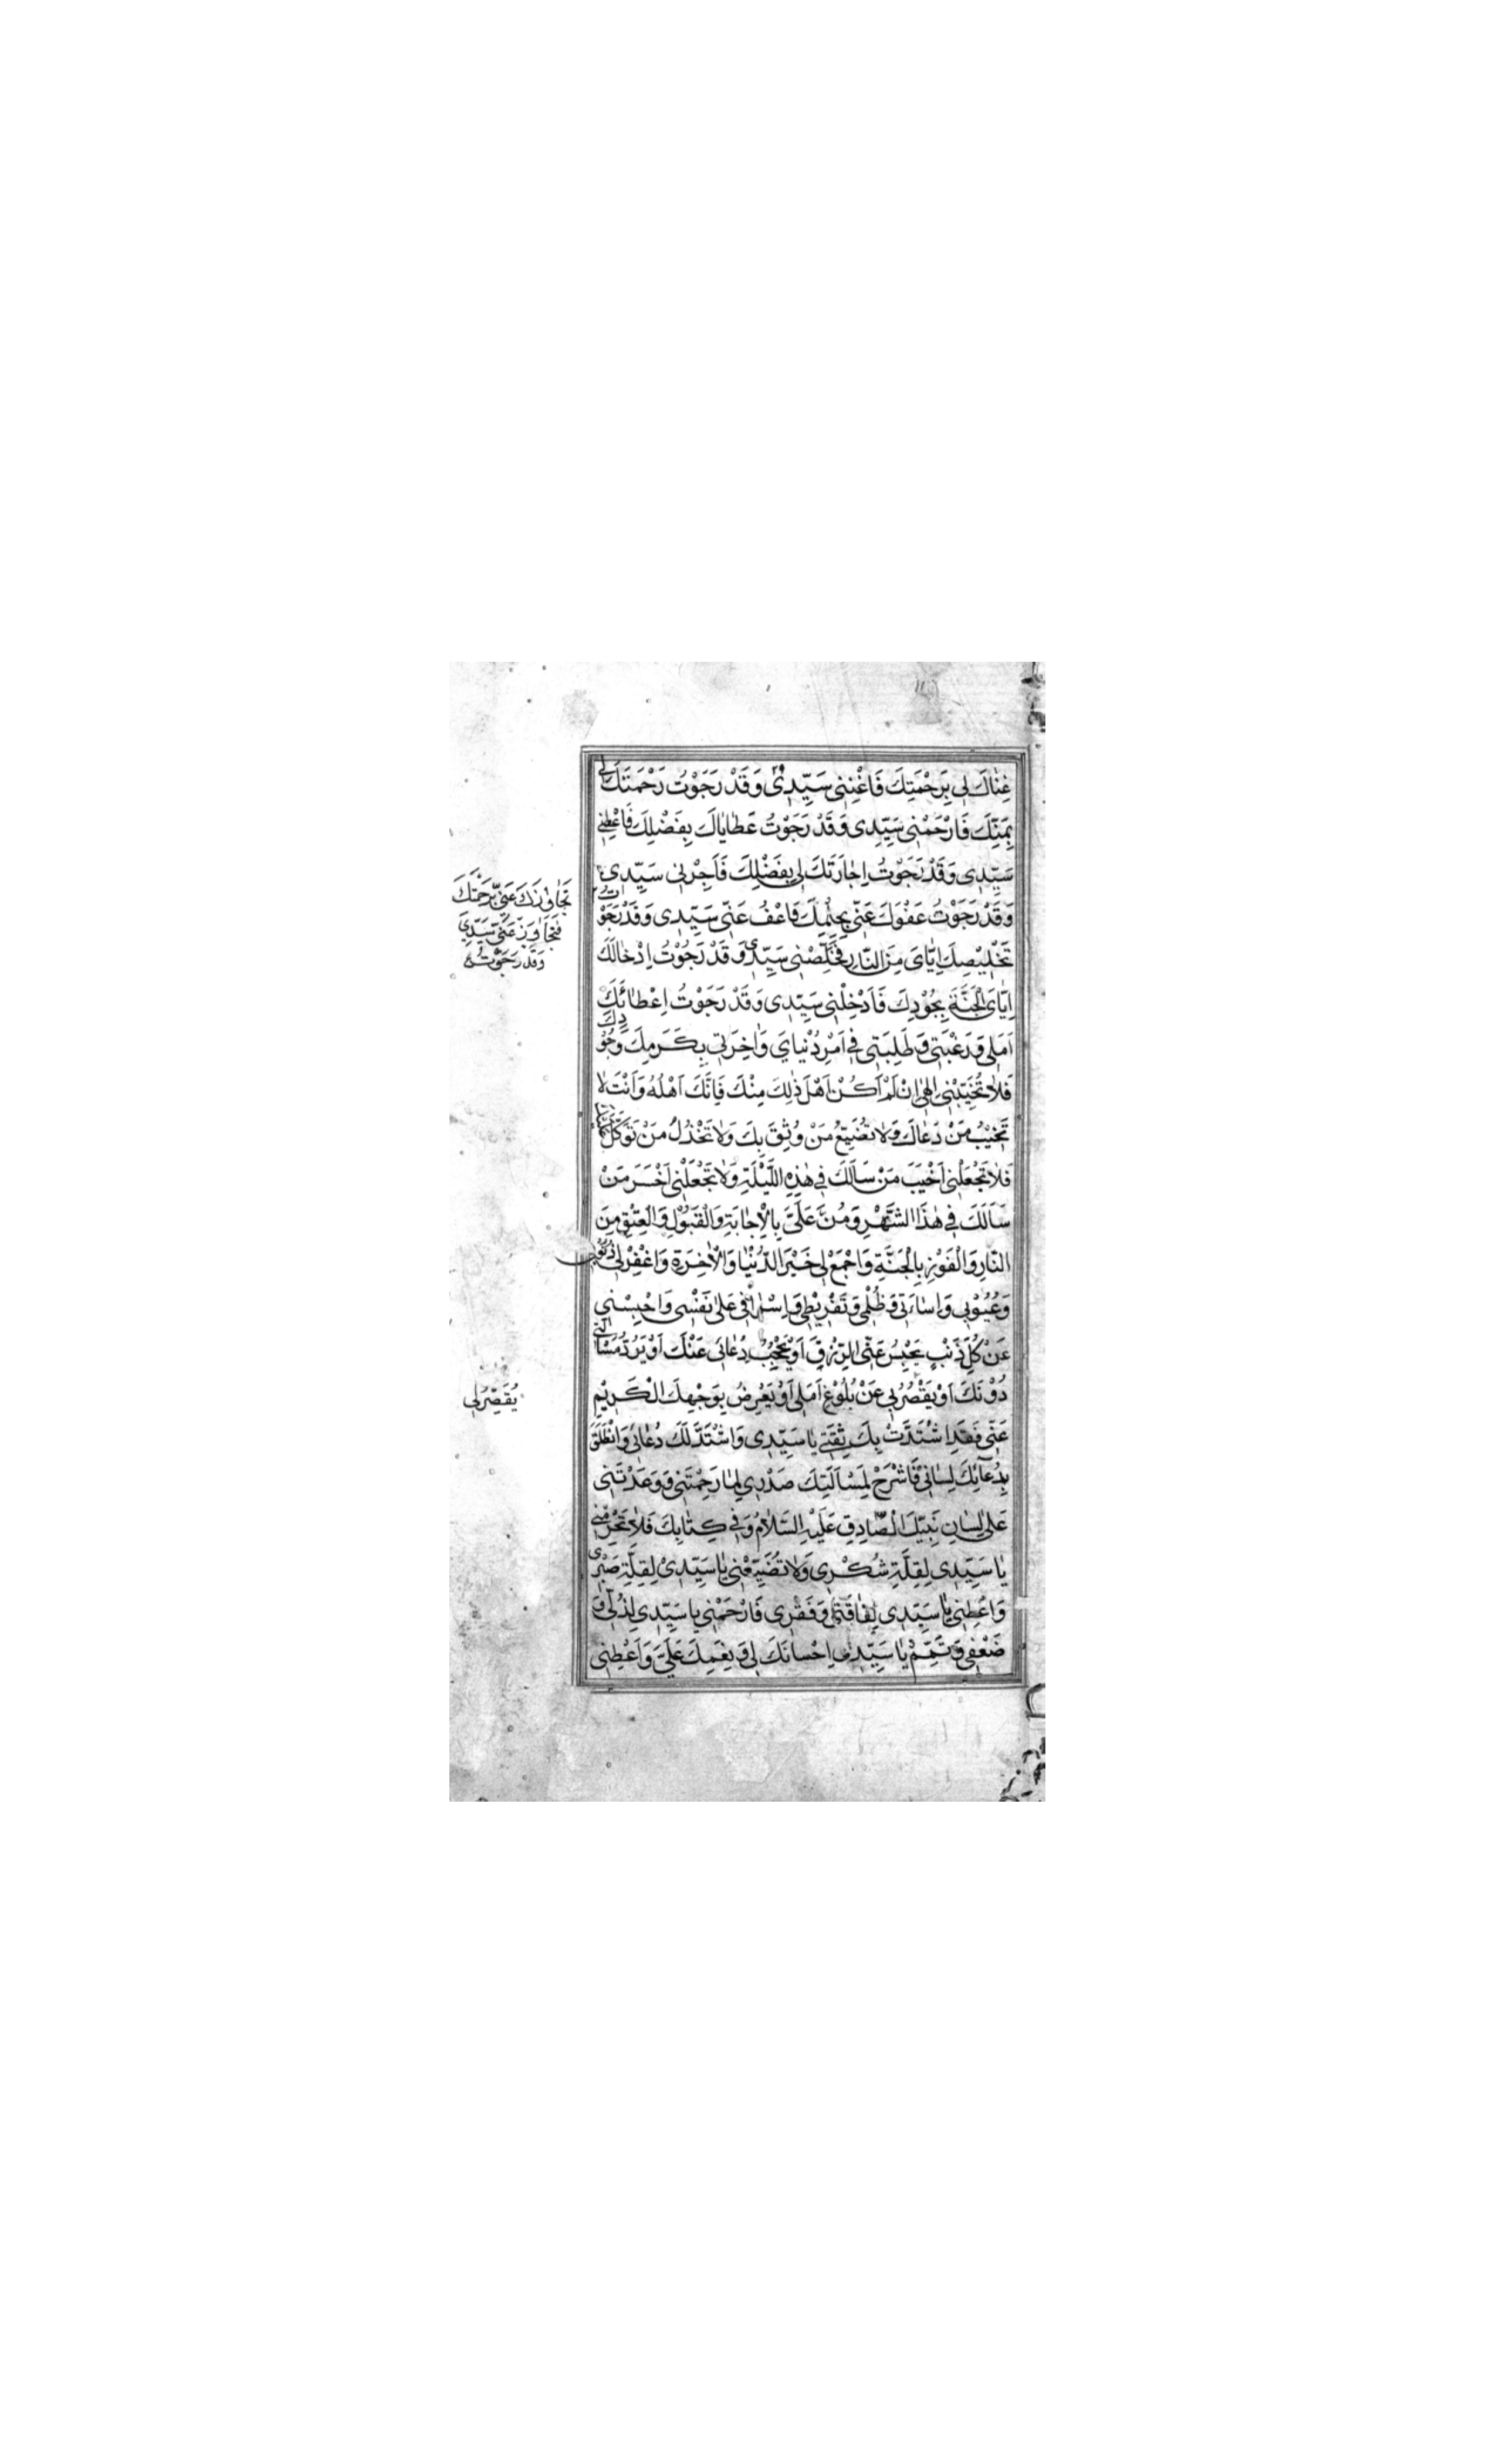 غِنٰاكَ لِى بِرَحْمَتِكَ فَاغْنِنِى سَيِّدِىْ وَقَدْ رَجَوْتُ رَحْمَتَكَ لِى
بِمَنِّكَ فَارْحَمْنِى سَيِّدِى وَقَدْ رَجَوْتُ عَطٰايٰاكَ بِفَضْلِكَ فَاعْطِنِى
سَيِّدِى وَقَدْ رَجَوْتُ اِجٰارَتَكَ لِى بِفَضْلِكَ فَاَجِرْنِى سَيِّدِى
وَقَدْ رَجَوْتُ عَفْوَكَ عَنِّى بِحِلْمِكَ فَاعْفُ عَنِّى سَيِّدِى وَقَدْ رَجَوْتُ
تَخْلِيْصِكَ اِيّٰاىَ مِنَ النّٰارِ فَخَلِّصْنِى سَيِّدِى وَقَدْ رَجَوْتُ اِدْخٰالَكَ
اِيّٰاىَ الْجَنَّةَ بِجُوْدِكَ فَاَدْخِلْنِى سَيِّدِى وَقَدْ رَجَوْتُ اِعْطٰائَكَ
اَمَلِى وَرَغْبَتِى وَطَلِبَتِى فِى اَمْرِ دُنْيٰاىَ وَاٰخِرَتِى بِكَرَمِكَ وَجُوْدِكَ
فَلٰا تُخَيِّبْنِى اِلٰهِى اِنْ لَمْ اَكُنْ اَهْلَ ذٰلِكَ مِنْكَ فَاِنَّكَ اَهْلُهُ وَاَنْتَ لٰا
تَخَيِّبُ مَنْ دَعٰاكَ وَلٰا تُضَيِّعُ مَنْ وُثِقَ بِكَ وَلٰا تَخْذُلُ مَنْ تَوَكَّلَ
فَلٰا تَجْعَلْنِى اَخْيَبَ مَنْ سَاَلَكَ فِى هٰذِهِ اللَّيْلَةِ وَلٰا تَجْعَلْنِى اَخْسَرَ مَنْ
سَاَلَكَ فِى هٰذَا الشَّهْرِ وَمُنَّ عَلَىَّ بِالْاِجٰابَةِ وَالْقَبُوْلِ وَالْعِتْقِ مِنَ
النّٰارِ وَالْفَوْزِ بِالْجَنَّةِ وَاجْمَعْ لِى خَيْرَ الدُّنْيٰا وَالْاٰخِرَةِ وَاغْفِرْ لِى ذُنُوْبِى
وَعُيُوْبِى وَاِسٰاءَتِى وَظُلْمِى وَتَفْرِيْطِى وَاِسْرٰافِى عَلٰى نَفْسِى وَاحْبِسْنِى
عَنْ كُلِّ ذَنْبٍ يَحْبِسُ عَنِّى الرِّزْقَ اَوْ يَحْجُبُ دُعٰائِى عَنْكَ اَوْ يَرُدُّ مَسْاَلَتِى
دُوْنَكَ اَوْ يَقْصُرُ بِى عَنْ بُلُوْغِ اَمَلِى اَوْ يَعْرِضُ بِوَجْهِكَ الْكَرِيْمِ
عَنِّى فَقَدِ اشْتَدَّتْ بِكَ ثِقَتِى يٰا سَيِّدِى وَاشْتَدَّ لَكَ دُعٰائِى وَانْطَلَقَ
بِدُعٰآئِكَ لِسٰانِى فَاشْرَحْ لِمَسْاَلَتِكَ صَدْرِى لِمٰا رَحِمْتَنِى وَوَعَدْتَنِى
عَلٰى لِسٰانِ نَبِيِّكَ الصّٰادِقِ عَلَيْهِ السَّلٰامُ وَفِى كِتٰابِكَ فَلٰا تَحْرِمْنِى
يٰا سَيِّدِى لِقِلَّةِ شُكْرِى وَلٰا تُضَيِّعْنِى يٰا سَيِّدِىْ لِقِلَّةِ صَبْرِى
وَاَعْطِنِى يٰا سَيِّدِى لِفٰاقَتِى وَفَقْرِى فَارْحَمْنِى يٰا سَيِّدِى لِذُلِّى وَ
ضَعْفِى وَتَمِّمْ يٰا سَيِّدِى اِحْسٰانَكَ لِى وَنِعَمِكَ عَلَىَّ وَاَعْطِنِى
تَجٰاوُزَكَ عَنِّى بِرَحْمَتِكَ
فَتَجٰاوَزْ عَنِّى سَيِّدِى
وَقَدْ رَجَوْتُ
يُقَصِّرُ لِى